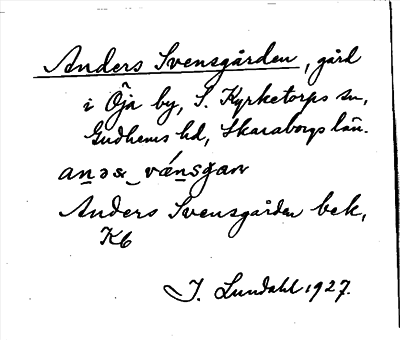 Anders Svensgården, gård
i Öja by, S. Kyrketorps sn,
Gudhems hd, Skaraborgs län.
Anders Svensgården bek.
I. Lundahl 1927.